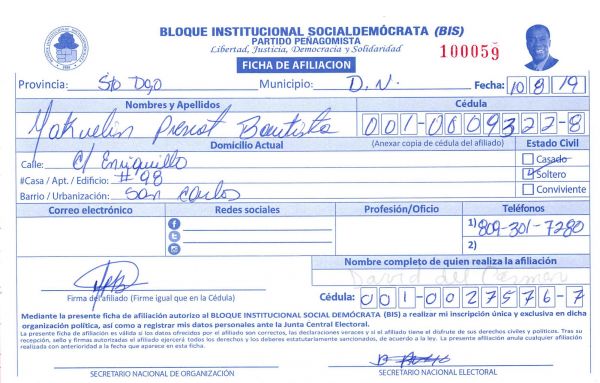 BLOQUE INSTITUCIONAL SOCIALDEMÓCRATA (BIS)
PARTIDO PEÑAGOMISTA
Libertad, Justicia, Democracia y Solidaridad
100059
FICHA DE AFILIACION
Provincia: Sto Dgo Municipio: D.N. Fecha: 10 8 19
Nombres y Apellidos Cédula
Bautista 001-0809322-8
Domicilio Actual (Anexar copia de cédula del afiliado) Estado Civil
Calle: C/ Enriquillo Casado
#Casa / Apt. / Edificio: #98 Soltero
Barrio / Urbanización: San Carlos Conviviente
Correo electrónico Redes sociales Profesión/Oficio Teléfonos
1) 809-301-7280
2)
Nombre completo de quien realiza la afiliación
David del Carmen
Firma del afiliado (Firme igual que en la Cédula) Cédula: 001-0027576-7
Mediante la presente ficha de afiliación autorizo al BLOQUE INSTITUCIONAL SOCIAL DEMÓCRATA (BIS) a realizar mi inscripción única y exclusiva en dicha
organización política, así como a registrar mis datos personales ante la Junta Central Electoral.
La presente ficha de afiliación es válida si los datos ofrecidos por el afiliado son correctos, las declaraciones veraces y si el afiliado tiene el disfrute de sus derechos civiles y políticos. Tras su
recepción, sello y firmas autorizadas el afiliado ejercerá todos los derechos y los deberes estatutariamente sancionados, de acuerdo a la ley. La presente afiliación anula cualquier afiliación
realizada con anterioridad a la fecha que aparece en esta ficha.
SECRETARIO NACIONAL DE ORGANIZACIÓN SECRETARIO NACIONAL ELECTORAL